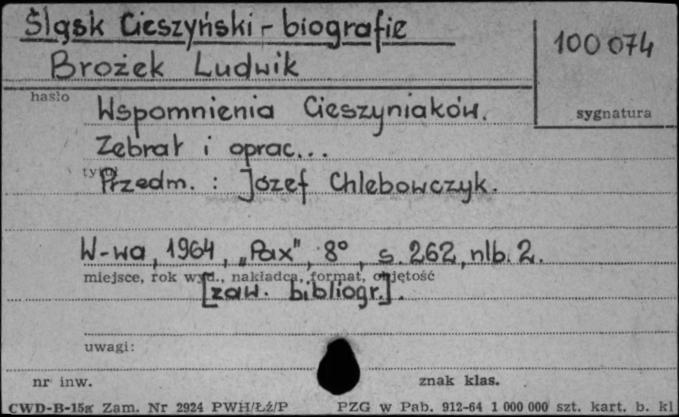 Śląsk Cieszyński - biografie
100 074
Brożek Ludwik
hasło
Wspomnienia Cieszyniaków.
sygnatura
Zebrał i oprac...
tytuł
Przedm. : Józef Chlebowczyk.
W-wa, 1964, „Pax", 8°, s. 262, nlb. 2.
miejsce, rok wyd., nakładca, format, objętość
[zaw. bibliogr.].
uwagi:
nr inw.
znak klas.
CWD-B-15g Zam. Nr 2924 PWH/Łź/P PZG w Pab. 912-64 1 000 000 szt. kart. b. kl